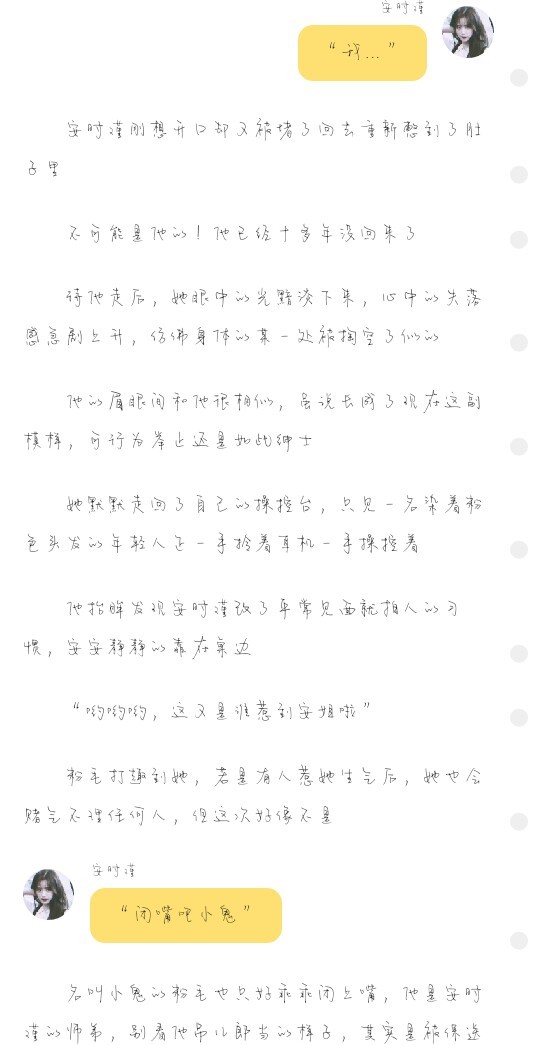 安时谨
“我…”
安时谨刚想开口却又被堵了回去重新憋到了肚
子里
不可能是他的！他已经十多年没回来了
待他走后，她眼中的光黯淡下来，心中的失落
感急剧上升，仿佛身体的某一处被掏空了似的
他的眉眼间和他很相似，虽说长成了现在这副
模样，可行为举止还是如此绅士
她默默走回了自己的操控台，只见一名染着粉
色头发的年轻人正一手拎着耳机一手操控着
他抬眸发现安时谨改了平常见面就拍人的习
惯，安安静静的靠在桌边
“哟哟哟，这又是谁惹到安姐啦”
粉毛打趣到她，若是有人惹她生气后，她也会
赌气不理任何人，但这次好像不是
安时谨
“闭嘴吧小鬼”
名叫小鬼的粉毛也只好乖乖闭上嘴，他是安时
谨的师弟，别看他吊儿郎当的样子，其实是被保送